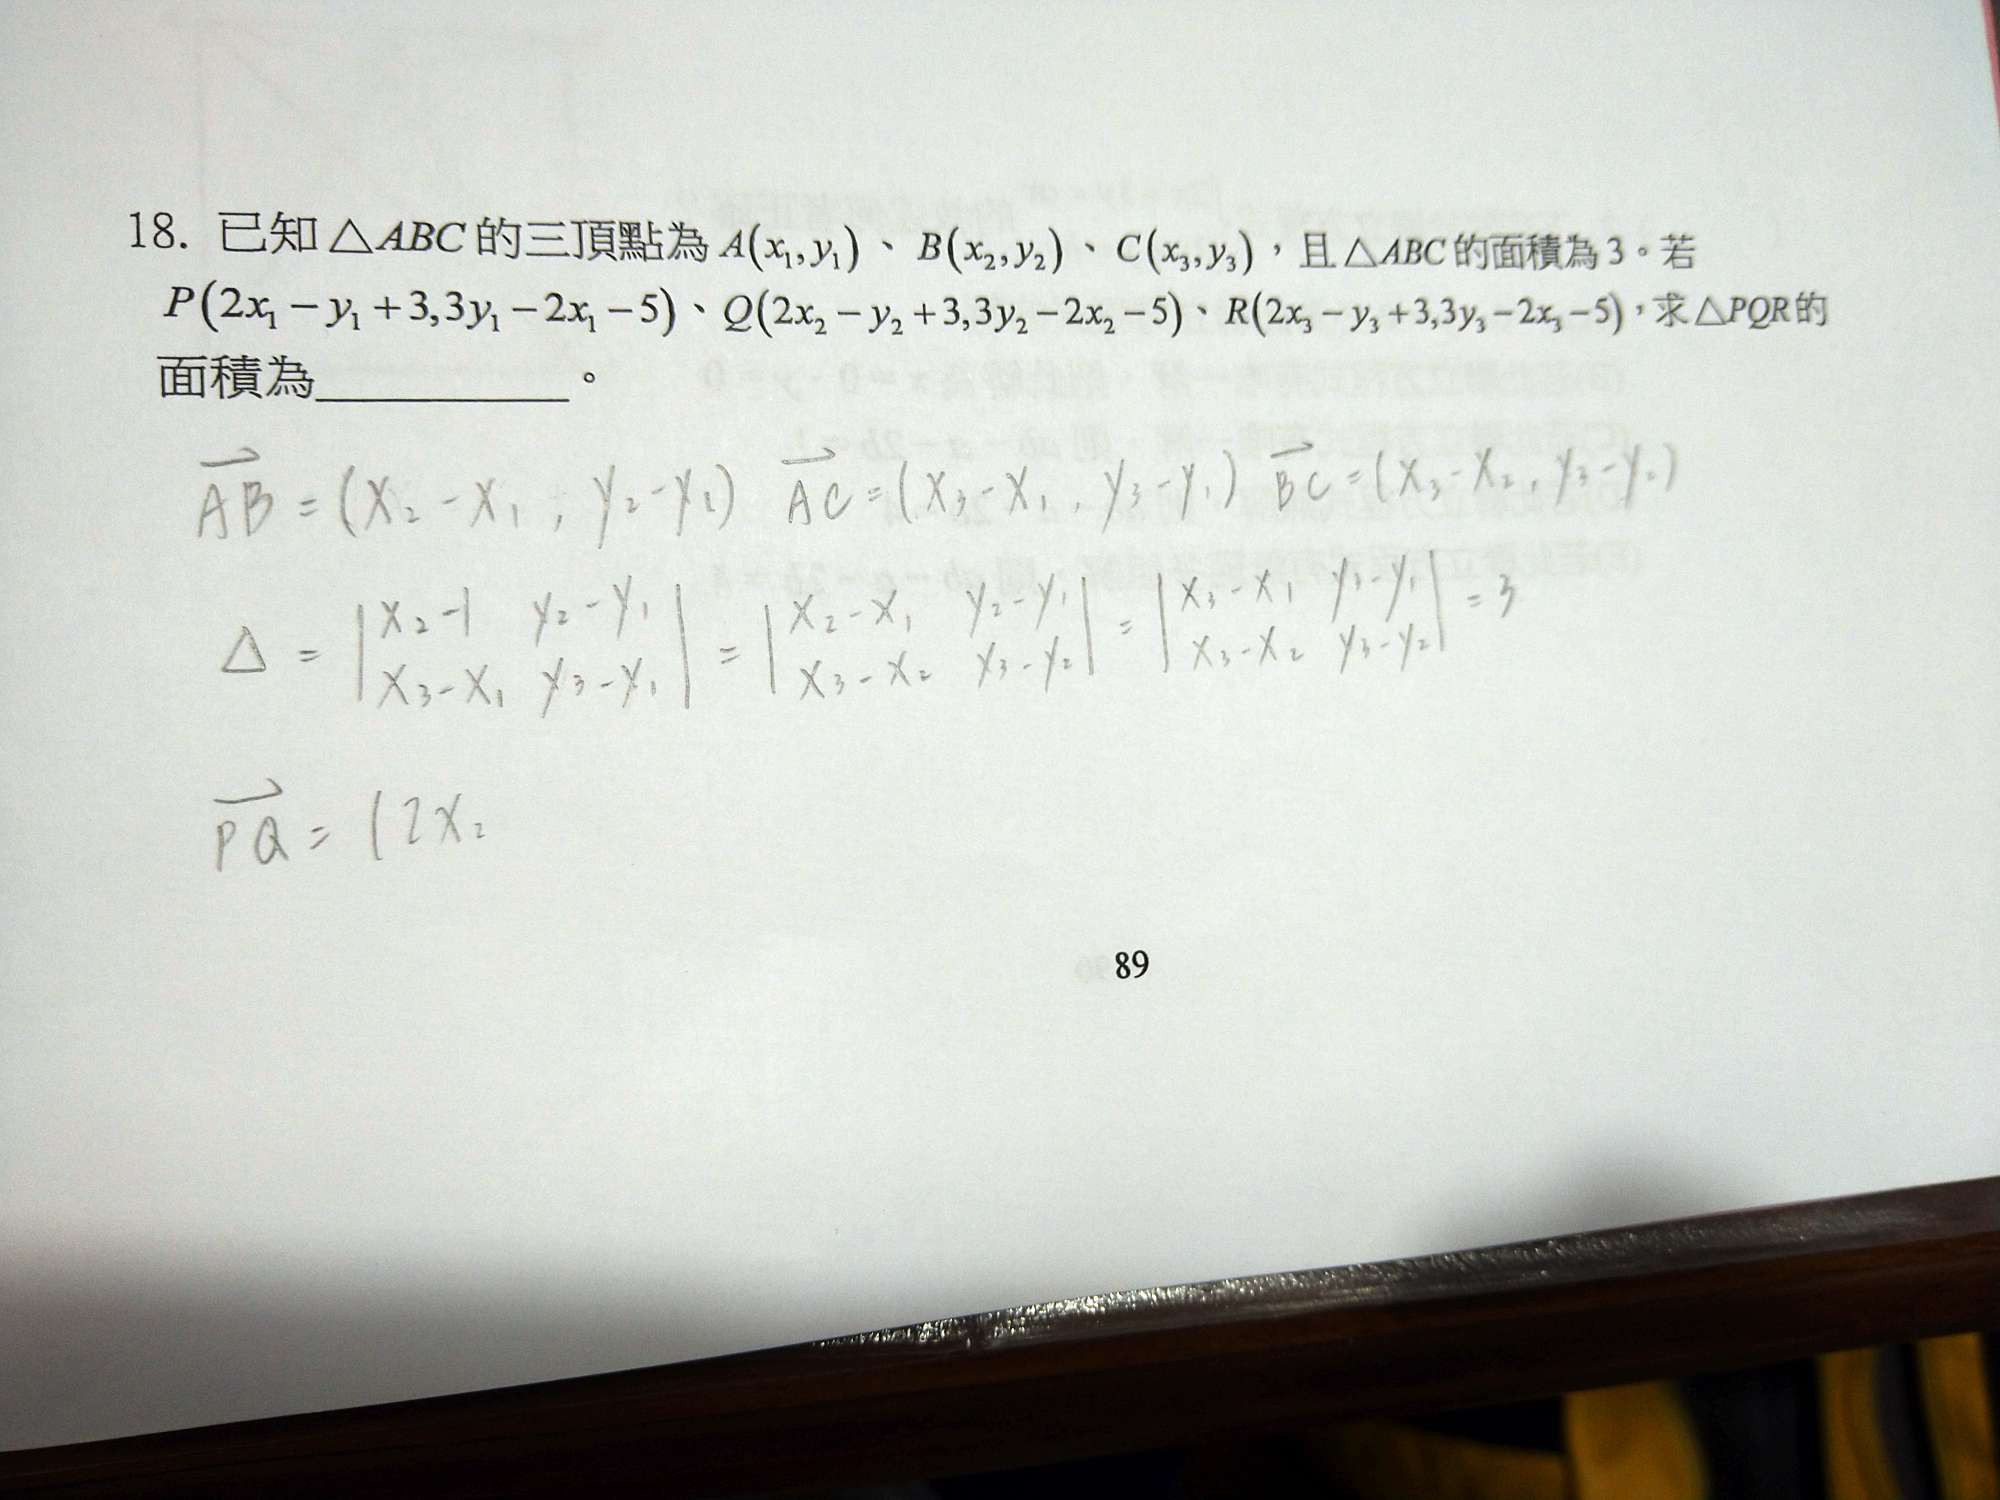 18. 已知△ABC的三頂點為A(x₁,y₁)、B(x₂,y₂)、C(x₃,y₃),且△ABC的面積為3。若
P(2x₁−y₁+3,3y₁−2x₁−5)、Q(2x₂−y₂+3,3y₂−2x₂−5)、R(2x₃−y₃+3,3y₃−2x₃−5),求△PQR的
面積為__________。
AB = (X₂-X₁, y₂-y₁) AC = (X₃-X₁, y₃-y₁) BC = (X₃-X₂, y₃-y₂)
△ = |X₂-1 y₂-y₁| = |X₂-X₁ y₂-y₁| = |X₃-X₁ y₃-y₁| = 3
|X₃-X₁ y₃-y₁| |X₃-X₂ y₃-y₂| |X₃-X₂ y₃-y₂|
PQ = (2X₂
89